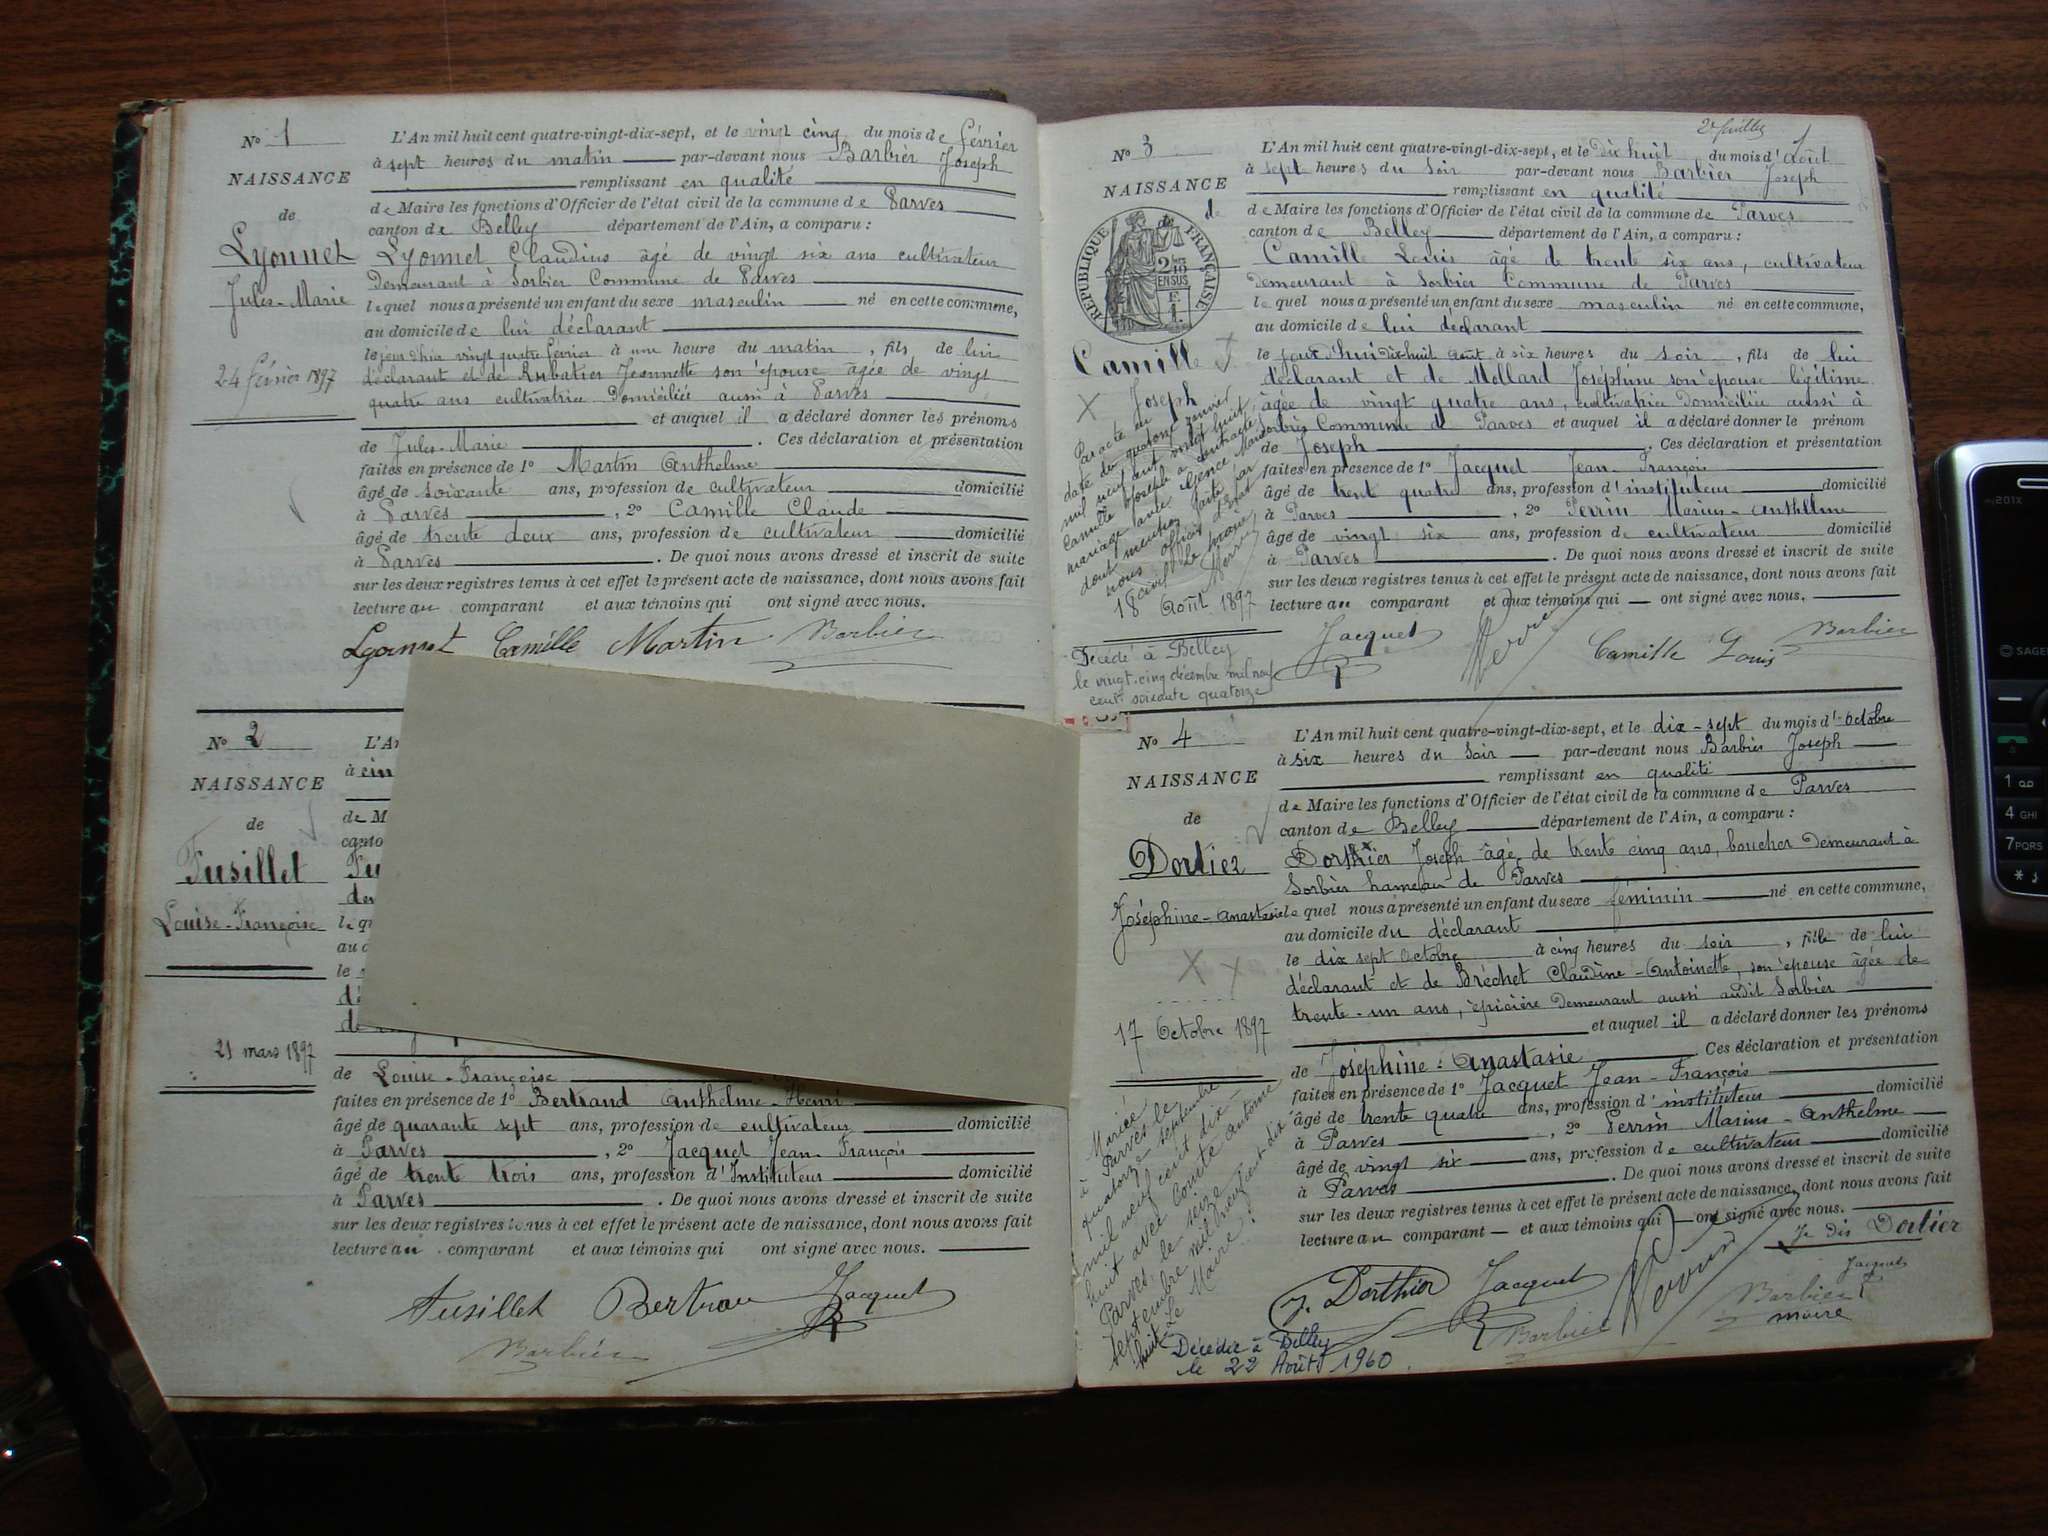 N° 1
NAISSANCE
de
Lyonnet
Jules-Marie
24 février 1897
L'An mil huit cent quatre-vingt-dix-sept, et le vingt cinq du mois de février
à sept heures du matin par-devant nous Barbier Joseph
remplissant en qualité
de Maire les fonctions d'Officier de l'état civil de la commune de Parves
canton de Belley département de l'Ain, a comparu :
Lyonnet Claudius âgé de vingt six ans cultivateur
Demeurant à Sorbier Commune de Parves
lequel nous a présenté un enfant du sexe masculin né en cette commune,
au domicile de lui déclarant
le jour d'hier vingt quatre février à une heure du matin, fils de lui
déclarant et de Rubatier Jeannette son épouse âgée de vingt
quatre ans cultivatrice Domiciliée aussi à Parves
et auquel il a déclaré donner les prénoms
de Jules-Marie. Ces déclaration et présentation
faites en présence de 1° Martin Anthelme
âgé de soixante ans, profession de cultivateur domicilié
à Parves, 2° Camille Claude
âgé de trente deux ans, profession de cultivateur domicilié
à Parves. De quoi nous avons dressé et inscrit de suite
sur les deux registres tenus à cet effet le présent acte de naissance, dont nous avons fait
lecture au comparant et aux témoins qui ont signé avec nous.
Lyonnet Camille Martin Barbier
N° 2
NAISSANCE
de
Fusillet
Louise-Françoise
21 mars 1897
L'A
à cin
de M
canto
Fu
de
le q
au
le
de Louise-Françoise
faites en présence de 1° Bertrand Anthelme-Henri
âgé de quarante sept ans, profession de cultivateur domicilié
à Parves, 2° Jacquet Jean-François
âgé de trente trois ans, profession d'Instituteur domicilié
à Parves. De quoi nous avons dressé et inscrit de suite
sur les deux registres tenus à cet effet le présent acte de naissance, dont nous avons fait
lecture au comparant et aux témoins qui ont signé avec nous.
Fusillet Bertrand Jacquet
Barbier
2e feuillet
N° 3
NAISSANCE
de
RÉPUBLIQUE FRANÇAISE
2/10 EN SUS
Camille
Joseph
Par acte en
date du quatorze janvier
mil neuf cent vingt huit
Camille Joseph a contracté
mariage avec
dont mention faite par
nous officier d'état
civil Le maire
Perrin
18 Août 1897
Décédé à Belley
le vingt-cinq décembre mil neuf
cent soixante quatorze
L'An mil huit cent quatre-vingt-dix-sept, et le dix huit du mois d'Août
à sept heures du soir par-devant nous Barbier Joseph
remplissant en qualité
de Maire les fonctions d'Officier de l'état civil de la commune de Parves
canton de Belley département de l'Ain, a comparu :
Camille Louis âgé de trente six ans, cultivateur
Demeurant à Sorbier Commune de Parves
lequel nous a présenté un enfant du sexe masculin né en cette commune,
au domicile de lui déclarant
le jour d'hui dix-huit Août à six heures du soir, fils de lui
déclarant et de Mollard Joséphine son épouse légitime
âgée de vingt quatre ans, cultivatrice domiciliée aussi à
Sorbier Commune de Parves et auquel il a déclaré donner le prénom
de Joseph. Ces déclaration et présentation
faites en présence de 1° Jacquet Jean-François
âgé de trent quatre ans, profession d'instituteur domicilié
à Parves, 2° Perrin Marius-Anthelme
âgé de vingt six ans, profession de cultivateur domicilié
à Parves. De quoi nous avons dressé et inscrit de suite
sur les deux registres tenus à cet effet le présent acte de naissance, dont nous avons fait
lecture au comparant et aux témoins qui ont signé avec nous.
Jacquet Perrin Camille Louis Barbier
N° 4
NAISSANCE
de
Dortier
Joséphine-Anastasie
17 Octobre 1897
Mariée
à Parves le
quatorze septembre
mil neuf cent dix-
huit avec Comte Antoine
Parves le seize
septembre mil neuf cent dix
huit Le Maire
Décédée à Belley
le 22 Août 1960.
L'An mil huit cent quatre-vingt-dix-sept, et le dix-sept du mois d'Octobre
à six heures du Soir par-devant nous Barbier Joseph
remplissant en qualité
de Maire les fonctions d'Officier de l'état civil de la commune de Parves
canton de Belley département de l'Ain, a comparu :
Dorthier Joseph âgé de trente cinq ans, boucher Demeurant à
Sorbier hameau de Parves
lequel nous a présenté un enfant du sexe féminin né en cette commune,
au domicile du déclarant
le dix sept Octobre à cinq heures du soir, fille de lui
déclarant et de Bréchet Claudine-Antoinette, son épouse âgée de
trente-un ans, épicière Demeurant aussi audit Sorbier
et auquel il a déclaré donner les prénoms
de Joséphine-Anastasie. Ces déclaration et présentation
faites en présence de 1° Jacquet Jean-François
âgé de trente quatre ans, profession d'instituteur domicilié
à Parves, 2° Perrin Marius-Anthelme
âgé de vingt six ans, profession de cultivateur domicilié
à Parves. De quoi nous avons dressé et inscrit de suite
sur les deux registres tenus à cet effet le présent acte de naissance, dont nous avons fait
lecture au comparant et aux témoins qui ont signé avec nous.
Je dis Dortier
J. Dorthier Jacquet Barbier Perrin
Jacquet
Barbier
maire
my201x
SAGEM
1
4 GHI
7PQRS
*